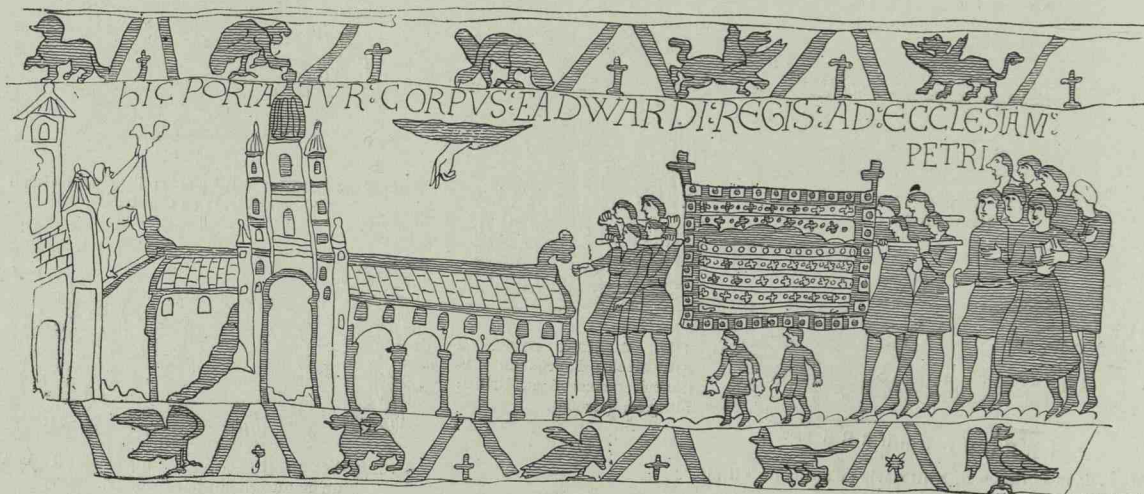 hIC PORTATVR: CORPVS: EADWARDI: REGIS: AD: ECCLESIAM:
PETRI